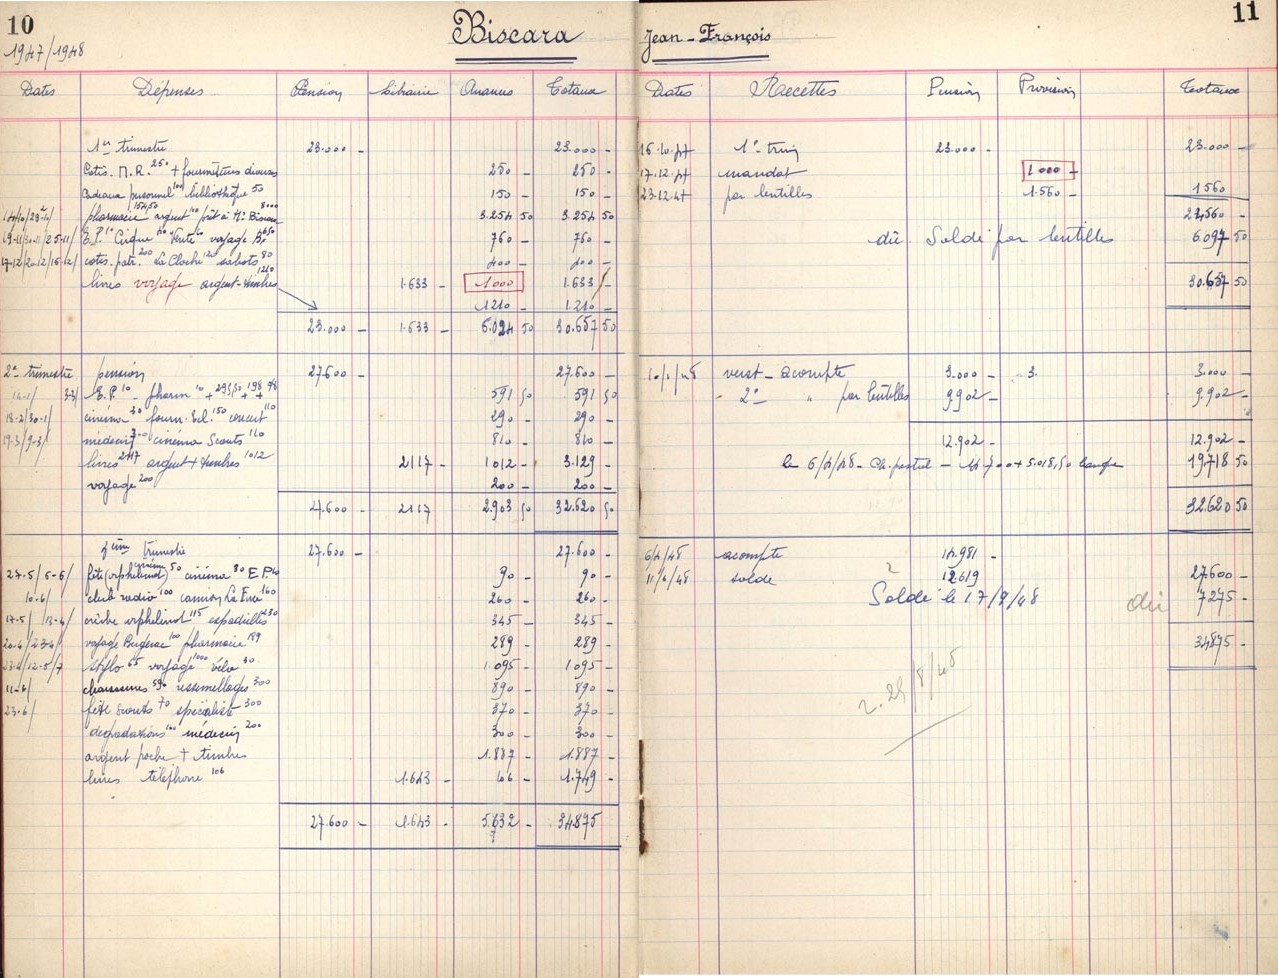 10
1947/1948
Biscara
Dates Dépenses Pension Librairie Annexes Totaux
1er trimestre 23.000 - 23.000 -
Cotis. M.R. 250 + fournitures diverses 250 - 250 -
Cadeaux personnel 100 bibliothèque 50 150 - 150 -
pharmacie 154,50 argent 100 prêt à Mr Biscara 3000 3.254 50 3.254 50
19-11/30-11/25-11/ E.P. 10 Cirque Vente voyage 650 760 - 760 -
17-12/20-12/16-12/ cotis. patr. 200 La Cloche 120 sabots 80 400 - 400 -
livres voyage argent-timbres 1210 1.633 - 1000 1.633 -
1210 - 1.210 -
23.000 - 1.633 - 6.024 50 30.657 50
2e trimestre pension 27.600 - 27.600 -
E.P. 10 - pharm 591 50 591 50
18-2/30-1/ cinéma 30 fourn. scl. 150 concert 110 290 - 290 -
19-3/9-3/ médecin 700 cinéma Scouts 110 810 - 810 -
livres 2117 argent + timbres 1012 2117 - 1012 - 3.129 -
voyage 200 200 - 200 -
27.600 - 2117 - 2.903 50 32.620 50
3ème trimestre 27.600 - 27.600 -
27-5/6-6/ fête (orphelinat) 50 cinéma 30 E.P. 10 90 - 90 -
10-6/ club radio 100 camion La Force 160 260 - 260 -
17-5/13-4/ crèche orphelinat 115 espadrilles 230 345 - 345 -
20-4/23-4/ voyage Bergerac 100 pharmacie 189 289 - 289 -
23-4/12-5/7 stylo 65 voyage 1000 vélo 30 1.095 - 1.095 -
11-6/ chaussures 590 ressemellages 300 890 - 890 -
23-6/ fête scouts 70 spécialiste 300 370 - 370 -
dégradations 100 médecin 200 300 - 300 -
argent poche + timbre 1.887 - 1.887 -
livres téléphone 106 1.643 - 106 - 1.749 -
27.600 - 1.643 - 5.632 - 34.875
11
Jean-François
Dates Recettes Pension Provision Totaux
16.10.47 1er trim 23.000 - 23.000 -
17.12.47 mandat 1000 -
23.12.47 par lentilles 1.560 - 1560
24560 -
dû Soldé par lentilles 6.097 50
30.657 50
10/1/48 verst - acompte 3.000 - 3. 3.000 -
- 2e " par lentilles 9902 - 9.902 -
12.902 - 12.902 -
le 6/4/48 - Ch. postal - 14.700 + 5.018,50 banque 19.718 50
32.620 50
6/4/48 acompte 14.981 -
11/6/48 solde 12619 27.600 -
Soldé le 17/9/48 dû 7275 -
34875 -